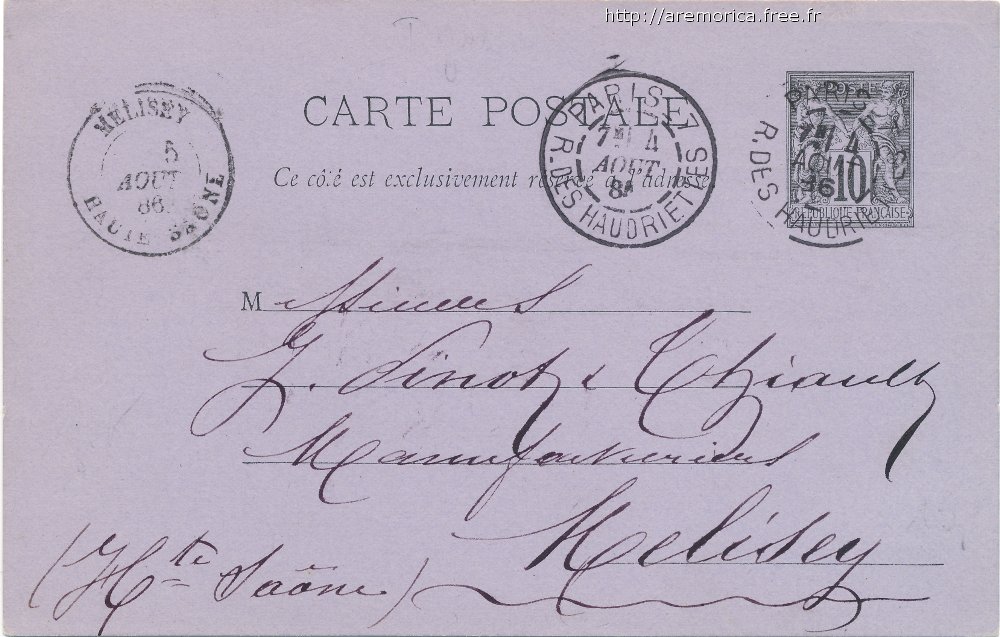 http://aremorica.free.fr
CARTE POSTALE
Ce côté est exclusivement réservé à l'adresse.
MELISEY
5
AOUT
86
HAUTE SAÔNE
PARIS
7E 4
AOUT
86
R. DES HAUDRIETTES
PARIS
7E 4
AOUT
86
R. DES HAUDRIETTES
10
REPUBLIQUE FRANÇAISE
Messieurs
Pinot & Thiault
Manufacturiers
Melisey
(Hte Saône)